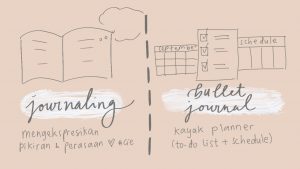 journaling
mengekspresikan
pikiran & perasaan
september
schedule
bullet
journal
kayak planner
(to-do list + schedule)